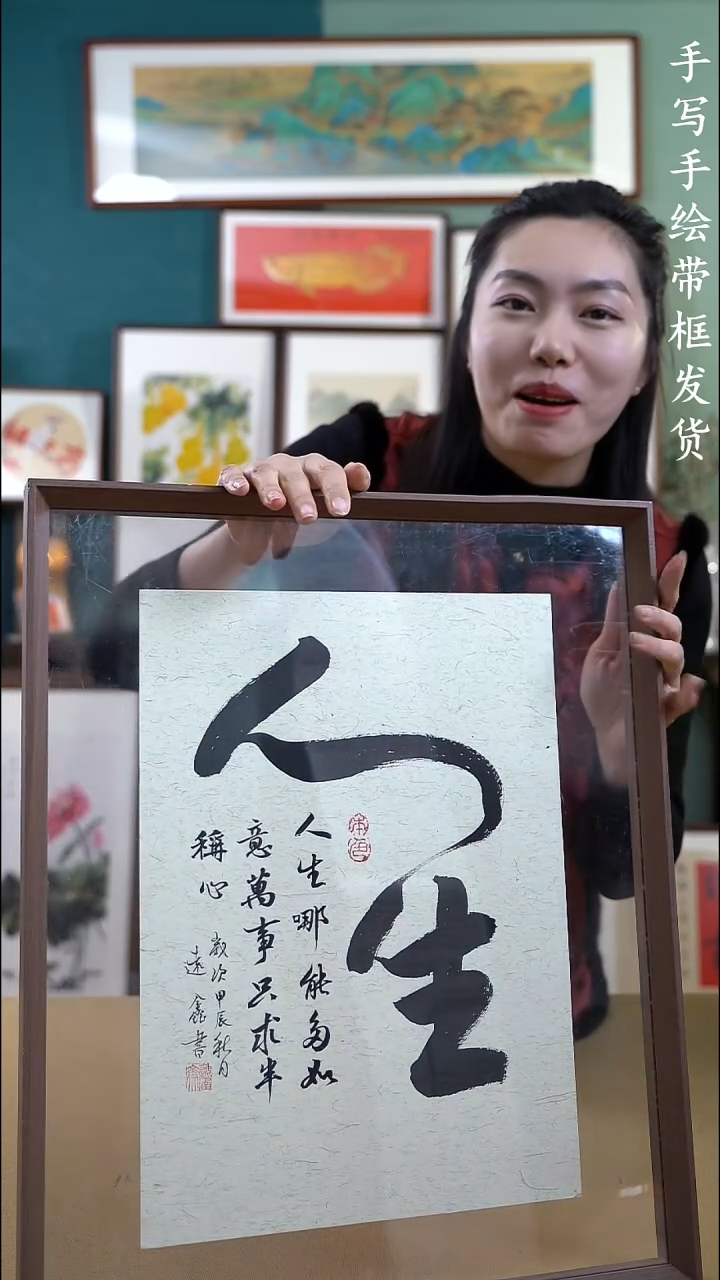 手写手绘带框发货
人生
人生哪能多如
意萬事只求半
稱心
歲次甲辰秋月
遠鑫書